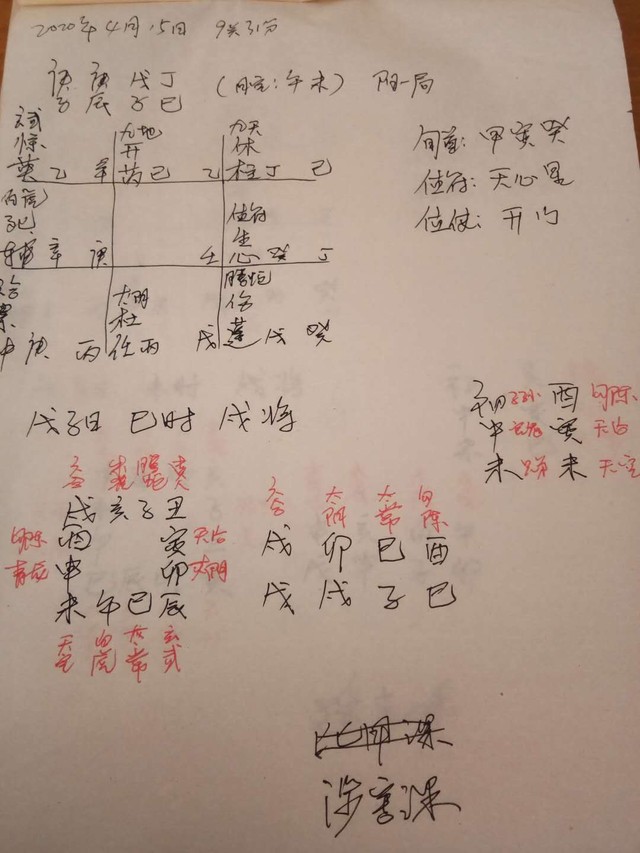 2020年4月15日 9关31分
庚 庚 戊 丁 (日空:午未) 阳一局
子 辰 子 巳
玄武 九地 九天
惊 开 休
英 乙 辛 芮 己 乙 柱 丁 己
旬首:甲寅癸
值符:天心星
值使:开门
白虎 值符
死 生
辅 辛 庚 壬 心 癸 丁
六合 太阴 腾蛇
景 杜 伤
冲 庚 丙 任 丙 戊 蓬 戊 癸
戊子日 巳时 戌将
子孙 酉 勾陈
申 寅 六合
未 未 天空
六合 朱雀 腾蛇 贵
戌 亥 子 丑
勾陈 酉 寅
青龙 申 卯 太阴
未 午 巳 辰
天空 白虎 太常 玄武
六合 太阴 太常 勾陈
戌 卯 巳 酉
戌 戌 子 巳
涉害课